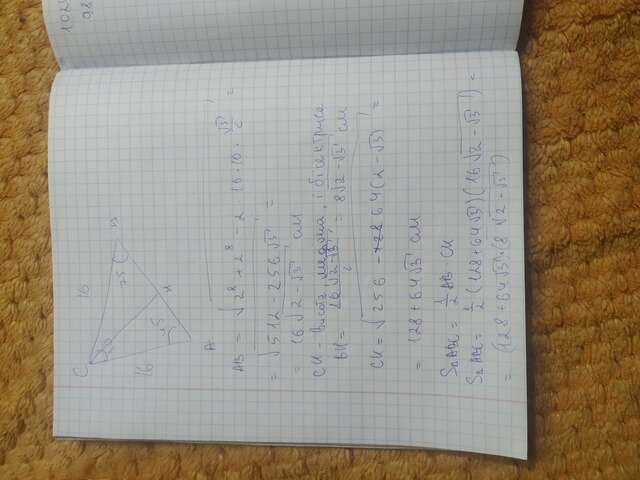 1024
98
C
16
16
30
75
75
B
H
A
AB = √2⁸ + 2⁸ - 2 · 16 · 16 · √3/2 =
= √512 - 256√3 =
= 16√2 - √3 см
CH - висота, медіана, і бісектриса
BH = 16√2-√3/2 = 8√2-√3 см
CH = √256 - 64(2-√3) =
= 128 + 64√3 см
S△ABC = 1/2 AB · CH
S△ABC = 1/2 (128+64√3)(16√2-√3) =
= (128+64√3)·(8√2-√3)